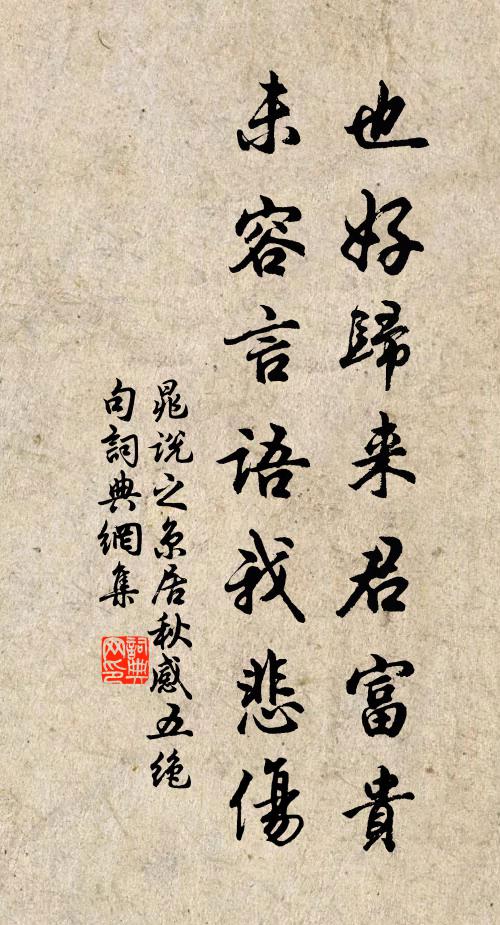 也好歸来君富貴
未容言語我悲傷
晁說之京居秋感五絕
句詞典網集
詞典
网印